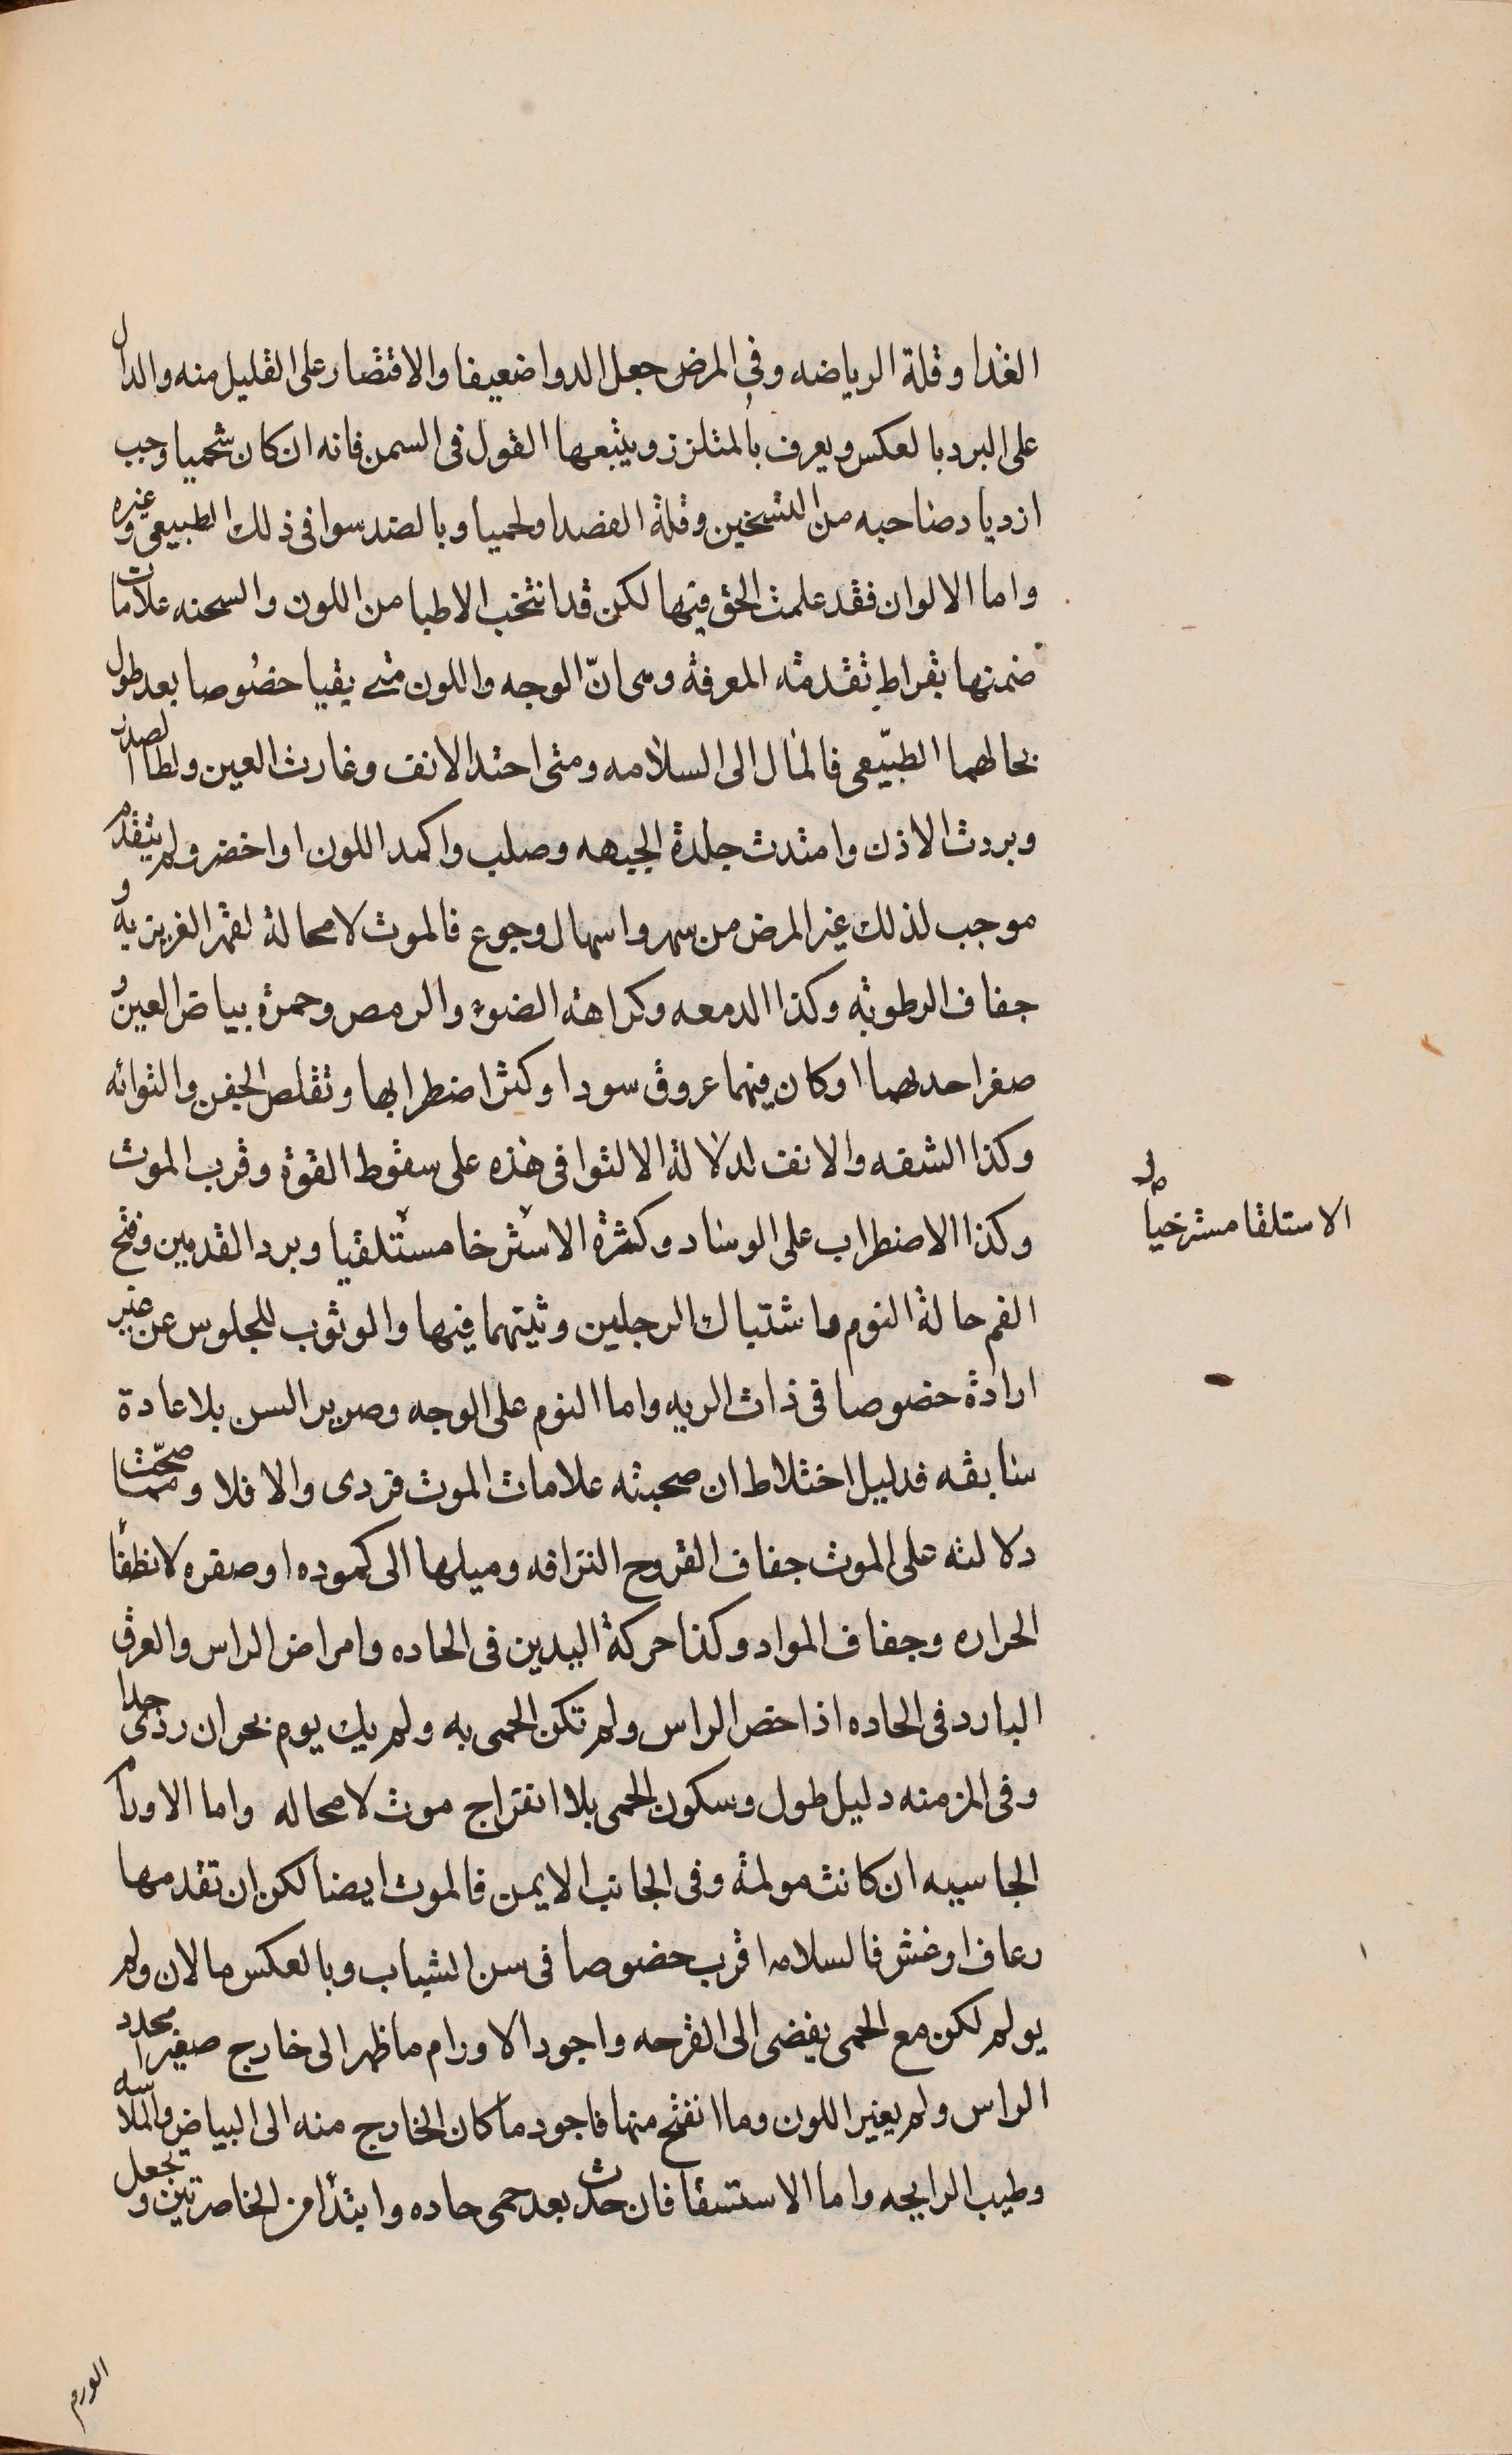 الغدا وقلة الرياضه وفى المرض جعل الدوا ضعيفا والاقتصار على القليل منه والدال
على البرد بالعكس ويعرف بالمتلزز ويتبعها القول فى السمن فانه ان كان شحميا وجب
ازدياد صاحبه من التسخين وقلة الفصد او لحميا وبالضد سوا فى ذلك الطبيعى وغيره
واما الالوان فقد علمت الحق فيها لكن قد انتخب الاطبا من اللون والسحنه علامات
ضمنها بقراط تقدمة المعرفة وهى انّ الوجه واللون متى بقيا خصُوصا بعد طول
بحالهما الطبّيعى فالمال الى السلامه ومتى احتد الانف وغارت العين ولطا الصدغ
وبردت الاذن وامتدت جلدة الجبهه وصلب واكمد اللون او اخضر ولم يتقدم
موجب لذلك غير المرض من سهر واسهال وجوع فالموت لا محالة لقهر الغريزيه و
جفاف الرطوبه وكذا الدمعه وكراهة الضوء والرمص وحمرة بياض العين و
صغر احدهما او كان فيهما عروق سودا وكثر اضطرابها وتقلص الجفن والتوائه
وكذا الشفه والانف لدلالة الالتوا فى هذه على سقوط القوة وقرب الموت
وكذا الاضطراب على الوساد وكثرة الاسترخا مستلقيا وبرد القدمين وفتح
الاستلقا مسترخيا
الفم حالة النوم واشتباك الرجلين وثيتهما فيها والوثوب للجلوس عن غير
ارادة خصوصا فى ذات الريه واما النوم على الوجه وصرير السن بلا عادة
سابقه فدليل اختلاط ان صحبته علامات الموت فردى والا فلا ومما صحّت
دلالته على الموت جفاف القروح النزافه وميلها الى كموده او صفره لانطفا
الحراره وجفاف المواد وكذا حركة اليدين فى الحاده وامراض الراس والعرق
البارد فى الحاده اذا خص الراس ولم تكن الحمى به ولم يك يوم بحران ردى جدا
وفى المزمنه دليل طول وسكون الحمى بلا انفراج موت لا محاله واما الاورام
الجاسيه ان كانت مولمة وفى الجانب الايمن فالموت ايضا لكن ان تقدمها
رعاف او غش فالسلامه اقرب خصوصا فى سن الشباب وبالعكس ما لان ولم
يولم لكن مع الحمى يفضى الى القرحه واجود الاورام ما ظهر الى خارج صغيرا محدد
الراس ولم يغير اللون وما انفتح منها فاجود ما كان الخارج منه الى البياض والملاسه
وطيب الرايحه واما الاستسقا فان حدث بعد حمى حاده وابتدأ من الخاصرتين وجعل
الورم